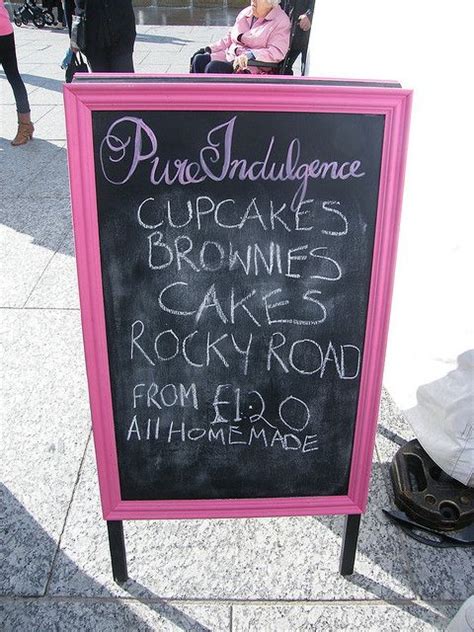 Pure Indulgence
CUPCAKES
BROWNIES
CAKES
ROCKY ROAD
FROM £1.20
All HOMEMADE